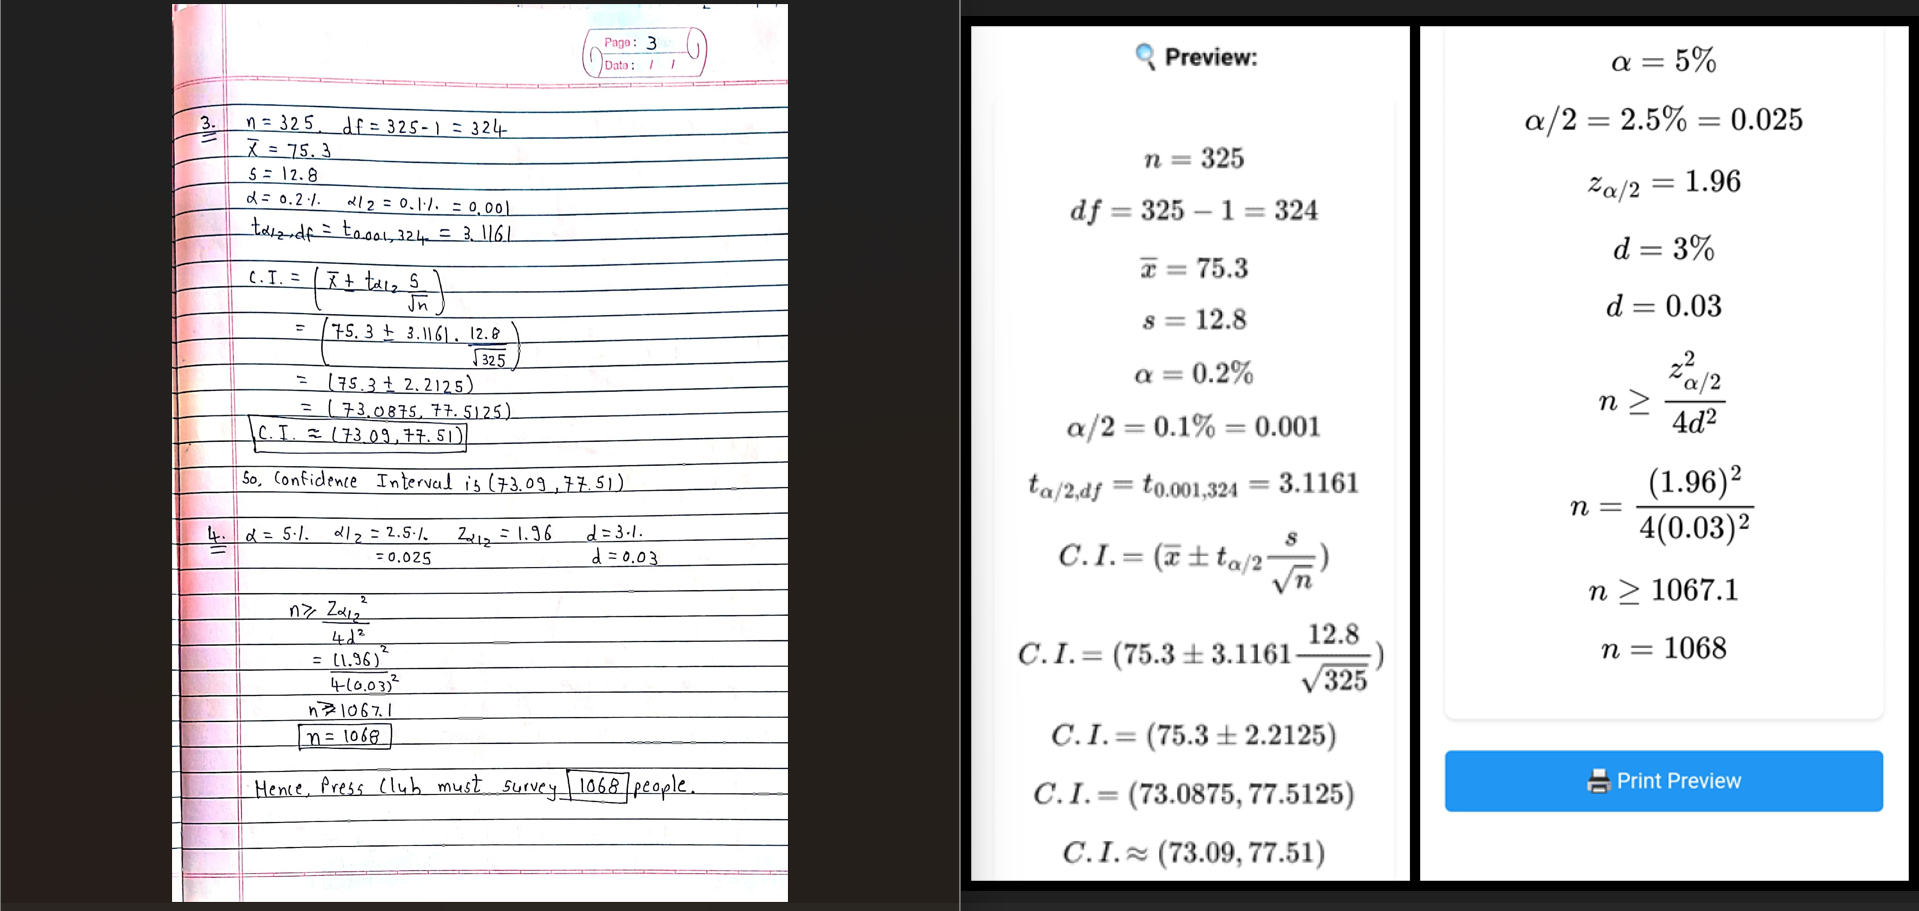 Page: 3
Date: / /
3. n = 325. df = 325-1 = 324
x̅ = 75.3
s = 12.8
α = 0.2% α/2 = 0.1% = 0.001
tα/2,df = t0.001,324 = 3.1161
C.I. = (x̅ ± tα/2 s/√n)
= (75.3 ± 3.1161 . 12.8/√325)
= (75.3 ± 2.2125)
= (73.0875, 77.5125)
C.I. ≈ (73.09, 77.51)
So, Confidence Interval is (73.09, 77.51)
4. α = 5% α/2 = 2.5% Zα/2 = 1.96 d = 3%
= 0.025 d = 0.03
n ≥ Zα/2²/4d²
= (1.96)²/4(0.03)²
n ≥ 1067.1
n = 1068
Hence, Press Club must survey 1068 people.
🔍 Preview:
n = 325
df = 325 − 1 = 324
x̅ = 75.3
s = 12.8
α = 0.2%
α/2 = 0.1% = 0.001
tα/2,df = t0.001,324 = 3.1161
C.I. = (x̅ ± tα/2 s/√n)
C.I. = (75.3 ± 3.1161 12.8/√325)
C.I. = (75.3 ± 2.2125)
C.I. = (73.0875, 77.5125)
C.I. ≈ (73.09, 77.51)
α = 5%
α/2 = 2.5% = 0.025
zα/2 = 1.96
d = 3%
d = 0.03
n ≥ z²α/2/4d²
n = (1.96)²/4(0.03)²
n ≥ 1067.1
n = 1068
🖨️ Print Preview